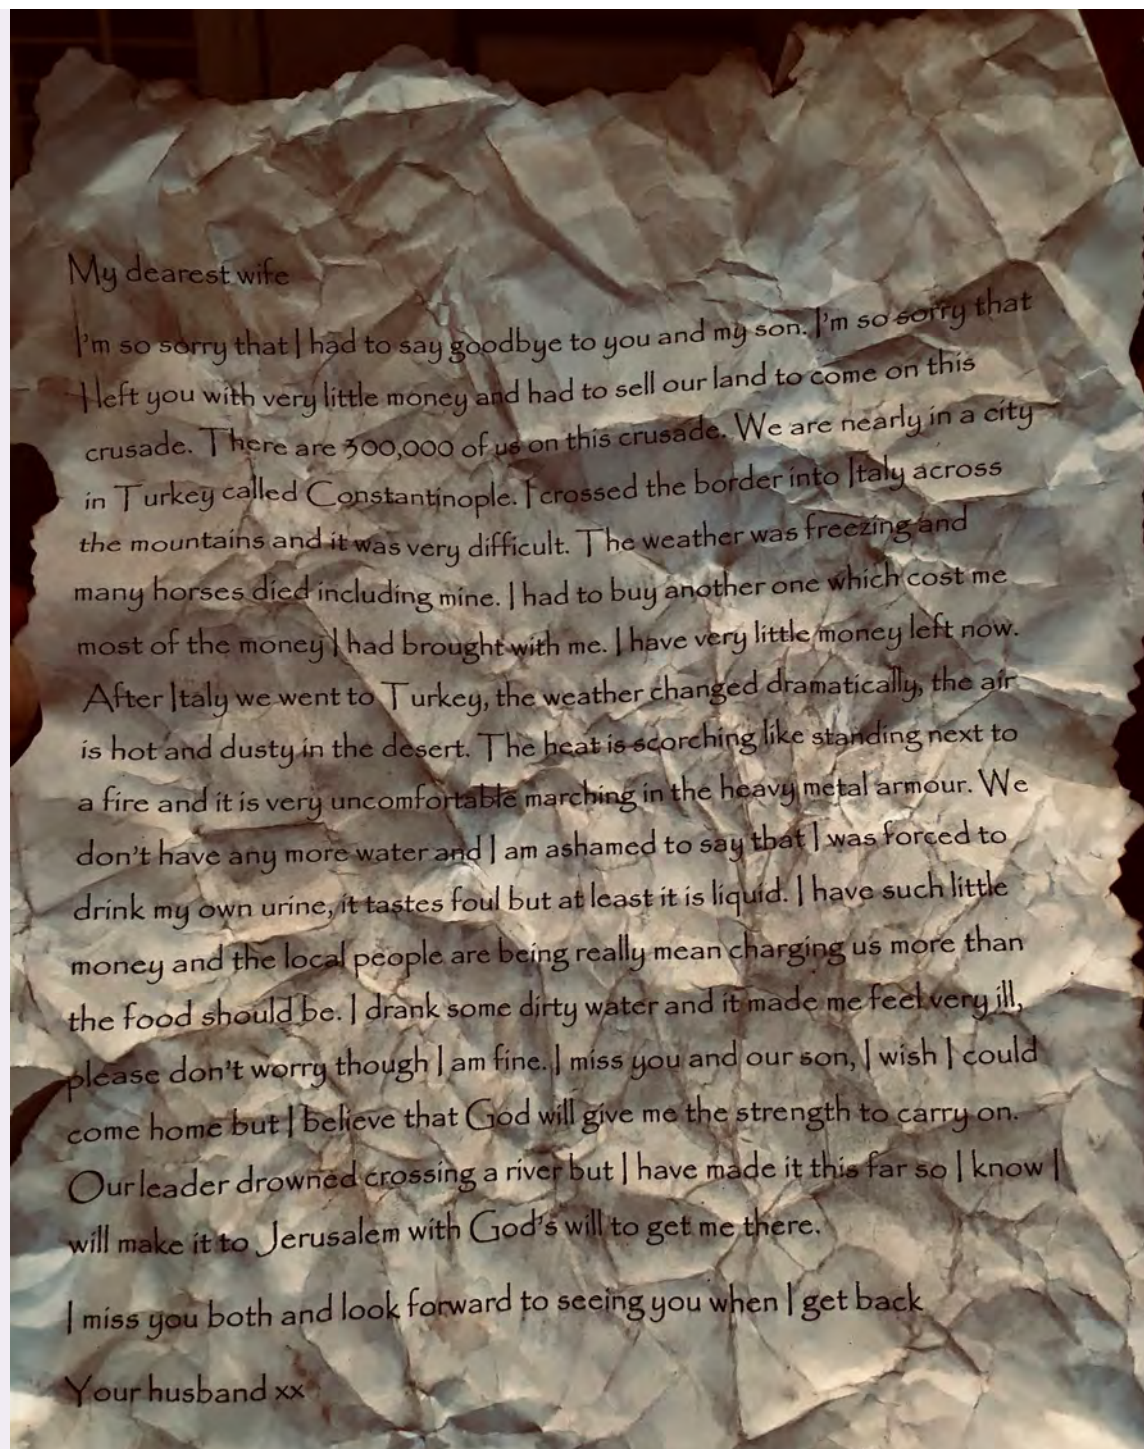 My dearest wife
I'm so sorry that I had to say goodbye to you and my son. I'm so sorry that
I left you with very little money and had to sell our land to come on this
crusade. There are 300,000 of us on this crusade. We are nearly in a city
in Turkey called Constantinople. I crossed the border into Italy across
the mountains and it was very difficult. The weather was freezing and
many horses died including mine. I had to buy another one which cost me
most of the money I had brought with me. I have very little money left now.
After Italy we went to Turkey, the weather changed dramatically, the air
is hot and dusty in the desert. The heat is scorching like standing next to
a fire and it is very uncomfortable marching in the heavy metal armour. We
don't have any more water and I am ashamed to say that I was forced to
drink my own urine, it tastes foul but at least it is liquid. I have such little
money and the local people are being really mean charging us more than
the food should be. I drank some dirty water and it made me feel very ill,
please don't worry though I am fine. I miss you and our son, I wish I could
come home but I believe that God will give me the strength to carry on.
Our leader drowned crossing a river but I have made it this far so I know I
will make it to Jerusalem with God's will to get me there.
I miss you both and look forward to seeing you when I get back
Your husband xx